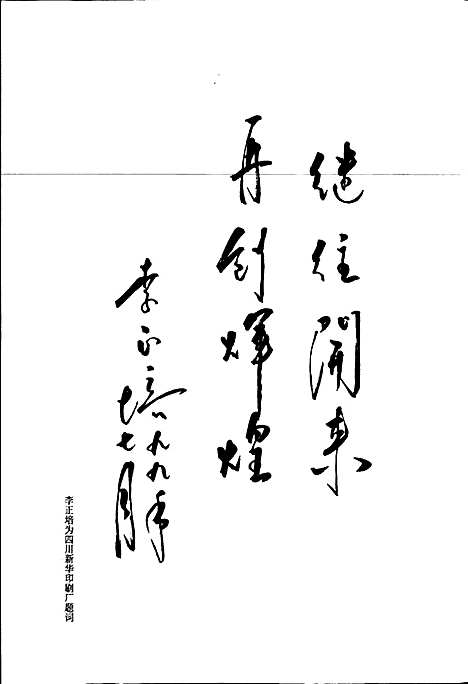 继往開来
再创辉煌
李正培
一九九年
七月
李正培为四川新华印刷厂题词